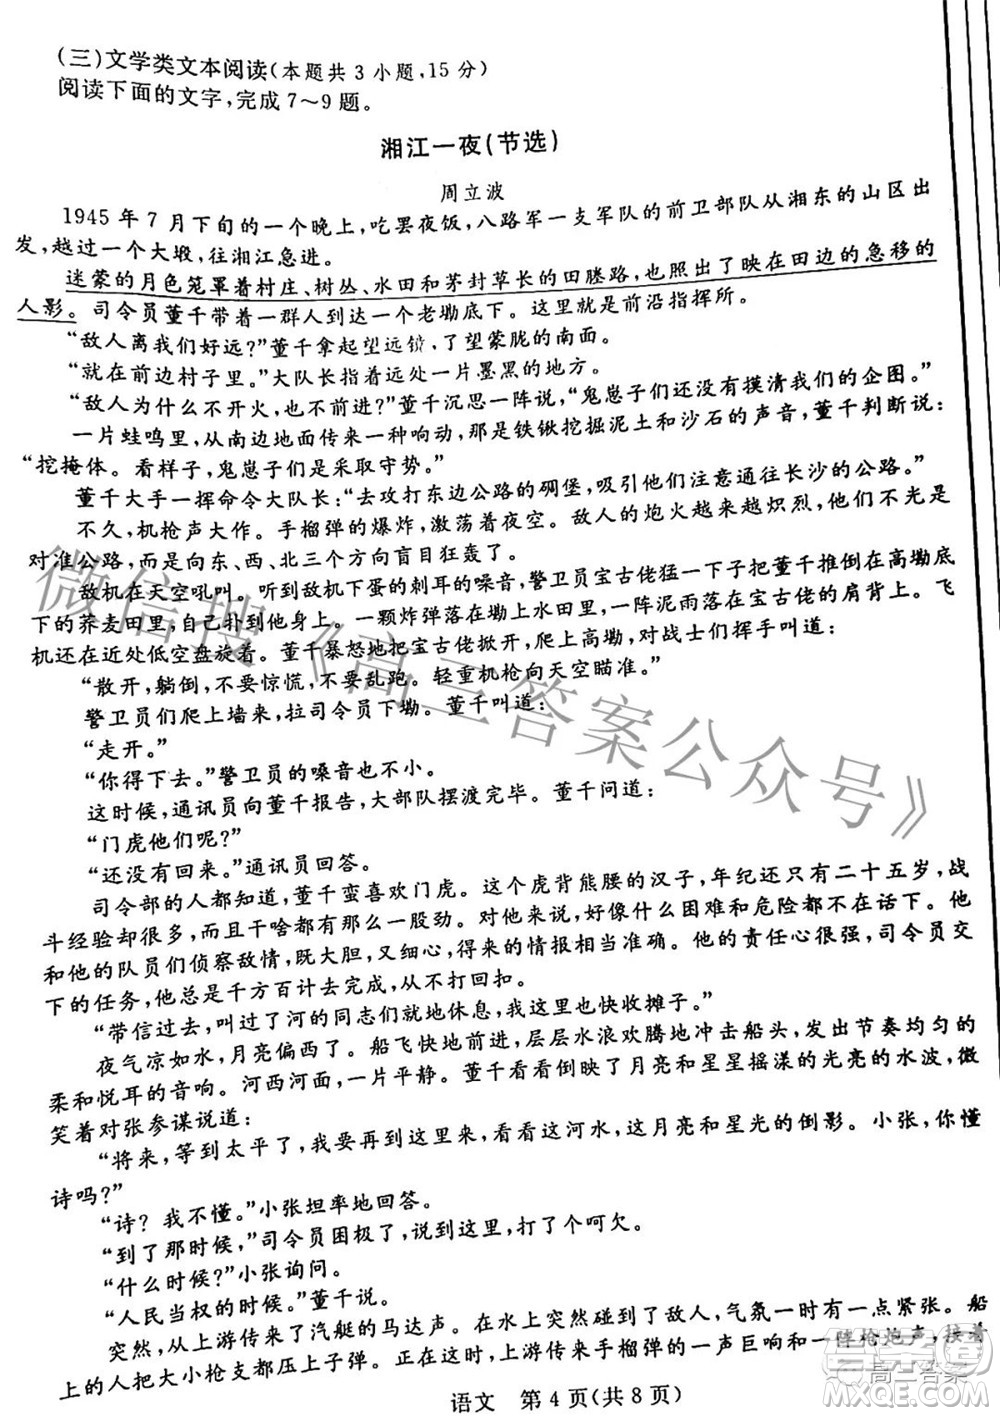 (三)文学类文本阅读(本题共3小题,15分)
阅读下面的文字,完成7～9题。
湘江一夜(节选)
周立波
1945年7月下旬的一个晚上,吃罢夜饭,八路军一支军队的前卫部队从湘东的山区出
发,越过一个大塅,往湘江急进。
迷蒙的月色笼罩着村庄、树丛、水田和茅封草长的田塍路,也照出了映在田边的急移的
人影。司令员董千带着一群人到达一个老坳底下。这里就是前沿指挥所。
“敌人离我们好远?”董千拿起望远镜,了望蒙胧的南面。
“就在前边村子里。”大队长指着远处一片墨黑的地方。
“敌人为什么不开火,也不前进?”董千沉思一阵说,“鬼崽子们还没有摸清我们的企图。”
一片蛙鸣里,从南边地面传来一种响动,那是铁锹挖掘泥土和沙石的声音,董千判断说:
“挖掩体。看样子,鬼崽子们是采取守势。”
董千大手一挥命令大队长:“去攻打东边公路的碉堡,吸引他们注意通往长沙的公路。”
不久,机枪声大作。手榴弹的爆炸,激荡着夜空。敌人的炮火越来越炽烈,他们不光是
对准公路,而是向东、西、北三个方向盲目狂轰了。
敌机在天空吼叫。听到敌机下蛋的刺耳的嗓音,警卫员宝古佬猛一下子把董千推倒在高坳底
下的荞麦田里,自己扑到他身上。一颗炸弹落在坳上水田里,一阵泥雨落在宝古佬的肩背上。飞
机还在近处低空盘旋着。董千暴怒地把宝古佬掀开,爬上高坳,对战士们挥手叫道:
“散开,躺倒,不要惊慌,不要乱跑。轻重机枪向天空瞄准。”
警卫员们爬上墙来,拉司令员下坳。董千叫道:
“走开。”
“你得下去。”警卫员的嗓音也不小。
这时候,通讯员向董千报告,大部队摆渡完毕。董千问道:
“门虎他们呢?”
“还没有回来。”通讯员回答。
司令部的人都知道,董千蛮喜欢门虎。这个虎背熊腰的汉子,年纪还只有二十五岁,战
斗经验却很多,而且干啥都有那么一股劲。对他来说,好像什么困难和危险都不在话下。他
和他的队员们侦察敌情,既大胆,又细心,得来的情报相当准确。他的责任心很强,司令员交
下的任务,他总是千方百计去完成。
“带信过去,叫过了河的同志们就地休息,我这里也快收摊子。”
夜气凉如水,月亮偏西了。船飞快地前进,层层水浪欢腾地冲击船头,发出节奏均匀的
柔和悦耳的音响。河西河面,一片平静。董千看看倒映了月亮和星星摇漾的光亮的水波,微
笑着对张参谋说道:
“将来,等到太平了,我要再到这里来,看看这河水,这月亮和星光的倒影。小张,你懂
诗吗?”
“诗?我不懂。”小张坦率地回答。
“到了那时候,”司令员困极了,说到这里,打了个呵欠。
“什么时候?”小张询问。
“人民当权的时候。”董千说。
突然,从上游传来了汽艇的马达声。在水上突然碰到了敌人,气氛一时有一点紧张。船
上的人把大小枪支都压上子弹。突然,上游传来手榴弹的一声巨响和一阵枪炮声,接着
语文 第4页(共8页)
微信搜《高三答案公众号》
答案圈
高三答案
MXQE.COM